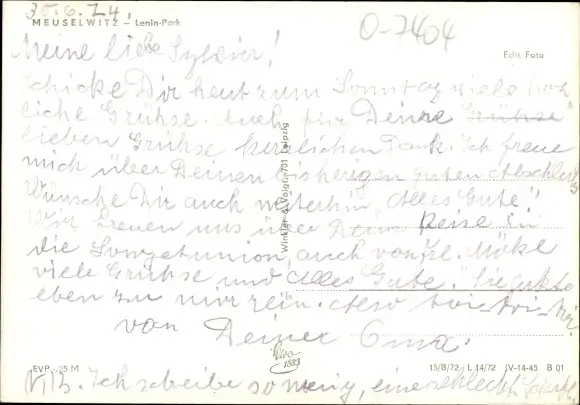 30.6.74.
MEUSELWITZ – Lenin-Park
O-7404
Echt Foto
Meine liebe Sylvia!
Schicke Dir heut zum Sonntag viele herz
liche Grühse. Auch für Deine Grühse
lieben Grühse herzlichen Dank. Ich freue
mich über Deinen bisherigen guten Abschluß
Wünsche Dir auch weiterhin "Alles Gute"!
Wir freuen uns über Deine Reise in
die Sowjetunion, auch von Fr. Müke
viele Grühse und "Alles Gute."
eben zu mir rein. Also toi-toi-toi
von Deiner Oma.
Winkler & Voigt, 701 Leipzig
Viva 1883
EVP -25 M
15/B/72 L 14/72 IV-14-45 B 01
Ich schreibe so wenig, eine schlecht